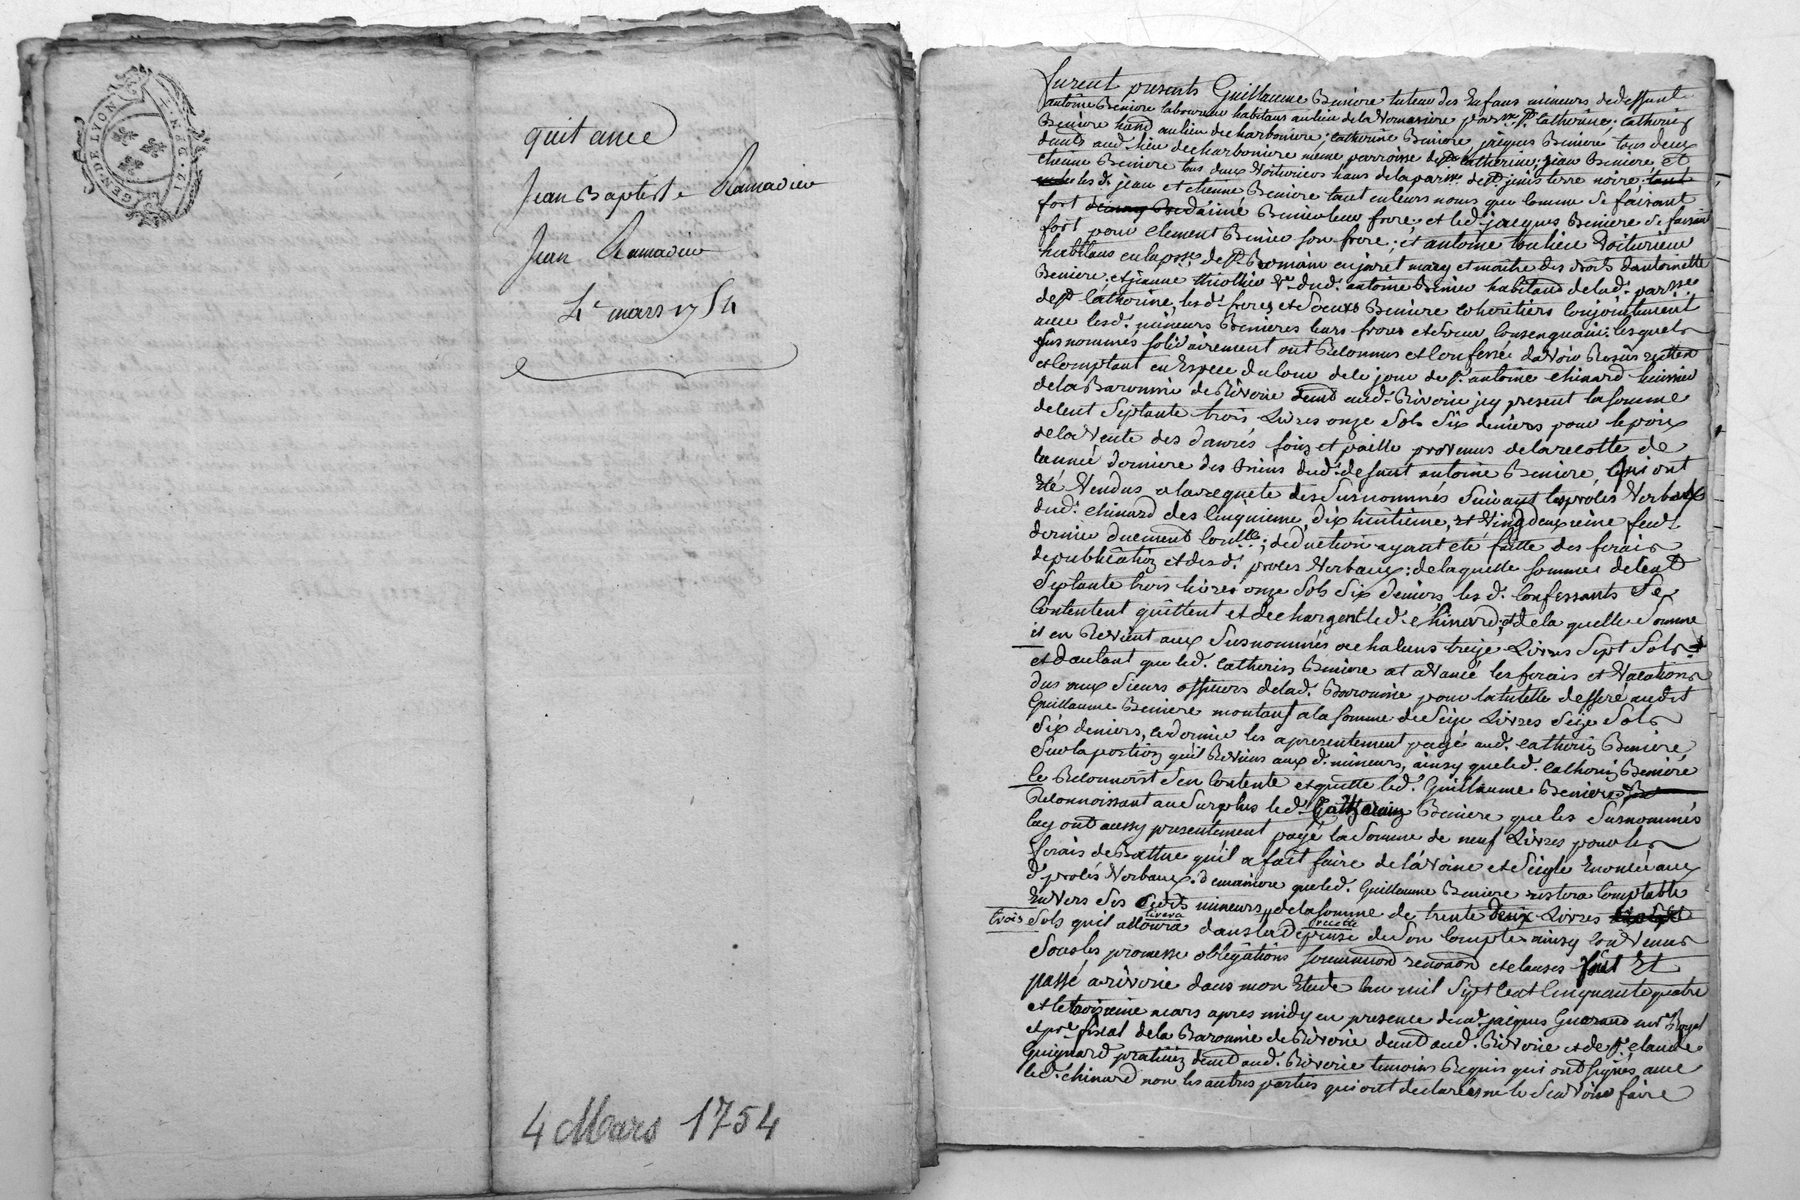 GEN. DE LYON
CINQ. LI
quitance
Jean Baptiste Ramadier
Jean Ramadier
4e mars 1754
4 Mars 1754
furent presents Guillaume Beniere tuteur des Enfans mineurs de deffunt
antoine Beniere laboureur habitans au lieu de la parsse St Catherine; Catherin
Beniere au lieu de charboniere; Catherine Beniere, jacques Beniere tous deux
dudt lieu de charboniere meme parroisse de Ste Catherine; jean Beniere et
etienne Beniere tous deux Voituriers de la parsse de St noire
les d. jean et etienne Beniere tant en leurs noms que comme se faisant
fort Beniere leur frere; et led. jacques Beniere se faisant
fort pour Clement Beniere son frere; et antoine Voiturier
habitans en la psse de St Romain en jaret mary et maitre des droits dantoinette
Beniere; et jeanne Ve dud. antoine Beniere habitans de lad. parsse
de Ste Catherine, les d. freres et soeurs Beniere coheritiers conjointement
avec lesd. mineurs Benieres leurs freres et soeur lesquels
susnommés solidairement ont Reconnus et Confessé davoir Reçus
et Comptant en Espece du cour de ce jour de Sr. antoine chinard huissier
de la Baronnie de Riverie demt aud. Riverie icy present la somme
de cent septante trois Livres onze sols six deniers pour le prix
de la Vente des danrés foin et paille provenus de la recolte de
lannée derniere des biens dud. defunt antoine Beniere, qui ont
été Vendus a la requete des susnommés suivant les procés Verbaux
dud. chinard des Cinquieme, dix huitieme, et Vingt deuxieme
dernier duement; deduction ayant eté faitte des frais
de publication et des d. procés Verbaux; de laquelle somme de cent
septante trois livres onze sols six deniers les d. Confessants se
Contentent quittent et dechargent led. chinard; et de la quelle somme
il en Revient aux susnommés a chacuns treize Livres sept sols
et dautant que led. Catherin Beniere at avancé les frais et Vacations
dus aux sieurs officiers de lad. Baronnie pour la tutelle desferé audit
Guillaume Beniere montant a la somme de seize Livres seize sols
six deniers, ce dernier les a presentement payé aud. Catherin Beniere
sur la portion quil Reviens aux d. mineurs, ainsy que led. Catherin Beniere
le Reconnoist sen Contente et quitte led. Guillaume Beniere
Reconnoissant au surplus led. Catherin Beniere que les susnommés
luy ont aussy presentement payé la somme de neuf Livres pour les
frais de Battre quil a fait faire de lavoine et seigle Enoncé aux
d. procés Verbaux; de maniere que led. Guillaume Beniere restera Comptable
Envers ses dits mineurs de la somme de trente deux Livres
trois sols quil allouera dans la depense de son Compte ainsy convenus
livrera
recette
sous les promesse obligations soumission renonon et clauses fait Et
passé a riverie dans mon Etude lan mil sept Cent Cinquante quatre
et le troisieme mars apres midy en presence de me jacques Guerand nore Royal
et pr. fiscal de la Baronnie de Riverie demt aud. Riverie et de Sr. claude
Guignard praticien demt aud. Riverie temoins Requis qui ont signés avec
led. chinard non les autres parties qui ont declarés ne le scavoir faire